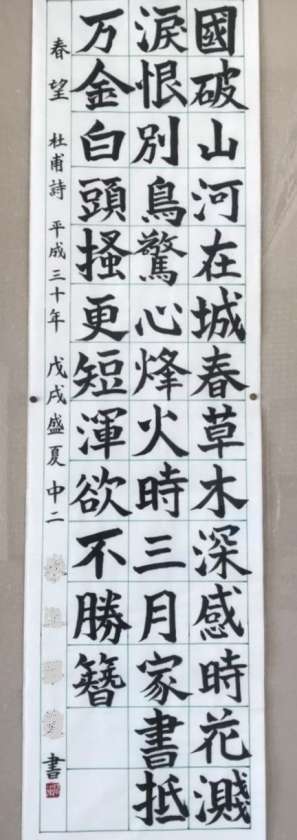 國破山河在城春草木深感時花濺
淚恨別鳥驚心烽火時三月家書抵
万金白頭搔更短渾欲不勝簪
春望 杜甫詩 平成三十年 戊戌盛夏 中二 書